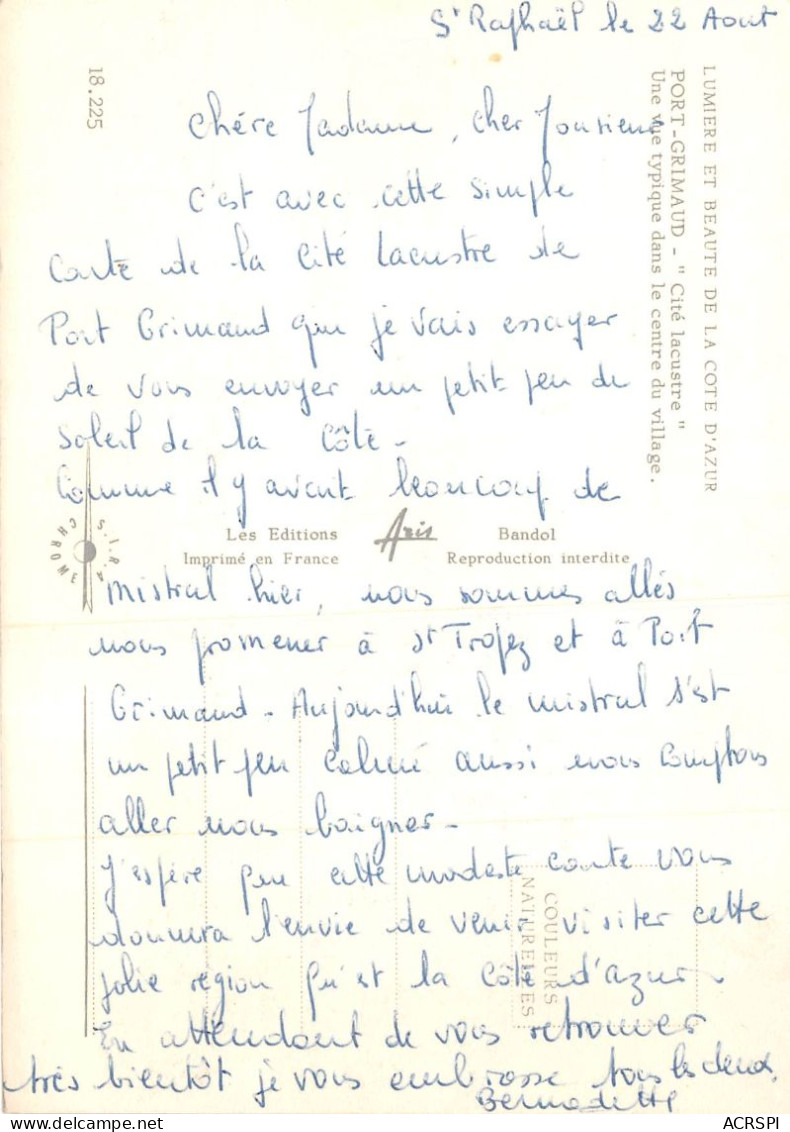 St Raphaël le 22 Aout
Chère Madame, cher Monsieur
c'est avec cette simple
Carte de la Cité lacustre de
Port Grimaud que je vais essayer
de vous envoyer un petit peu de
Soleil de la Côte -
Comme il y avait beaucoup de
mistral hier, nous sommes allés
nous promener à St Tropez et à Port
Grimaud - Aujourd'hui le mistral s'est
un petit peu calmé aussi nous comptons
aller nous baigner -
J'espère que cette modeste carte vous
donnera l'envie de venir visiter cette
jolie région qu'est la Côte d'azur -
En attendant de vous retrouver
très bientôt je vous embrasse tous les deux.
Bernadette
18.225
LUMIERE ET BEAUTE DE LA COTE D'AZUR
PORT-GRIMAUD - " Cité lacustre "
Une vue typique dans le centre du village.
Les Editions Aris Bandol
Imprimé en France Reproduction interdite
S.I.R.
CHROME
COULEURS
NATURELLES
ACRSPI